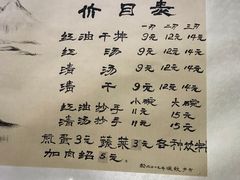 价目表
一刃 二刃 三刃
红油干拌 9元 12元 14元
红汤 9元 12元 14元
清汤 9元 12元 14元
清干 9元 12元 14元
小碗 大碗
红油抄手 11元 15元
清汤抄手 11元 15元
煎蛋3元 蔬菜3元 各种炊拌
加肉绍5元